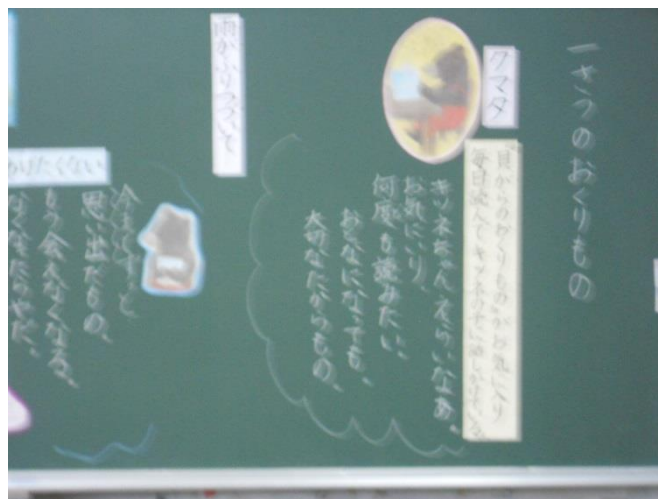 一さつのおくりもの
クマタ
"貝がらのおくりもの"がお気に入り
毎日読んでキツネの子に
キツネちゃん、えらいなあ。
お気にいり、
何度も読みたい。
おとなになっても、
大切なたからもの。
雨がふりつづいて
かりたくない
思い出だもの、
もう会えなくなる。
なくなったらやだ。